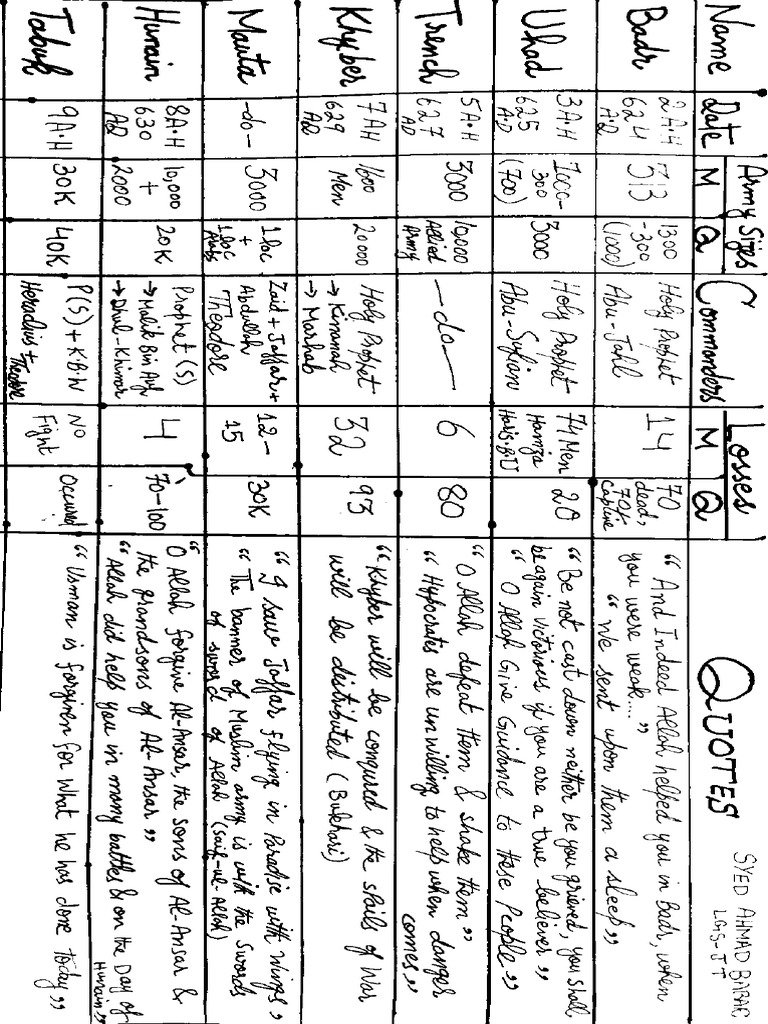 Name Date Army Sizes Commanders Losses QUOTES SYED AHMAD BABAR
M Q M Q LGS-JT
Badr 2A.H 313 1300 Holy Prophet 14 70 "And Indeed Allah helped you in Badr, when
624 -300 Abu-Jahl dead, you were weak..."
A.D (1000) 70 captive "We sent upon them a sleep"
Uhad 3A.H 1000- 3000 Holy Prophet 74 Men 20 "Be not cast down neither be you grieved, you shall
625 300 Abu-Sufian Hamza be again victorious if you are a true believer"
A.D (700) "O Allah Give Guidance to these People"
Trench 5A.H 3000 10,000 -do- 6 80 "O Allah defeat them & shake them"
627 Allied "Hypocrates are unwilling to help when danger
AD Army comes"
Khyber 7AH 1600 20000 Holy Prophet 32 93 "Khyber will be conqured & the spoils of War
629 Men → Kinanah will be distributed (Bukhari)
AD → Marhab
Mauta -do- 3000 1 lac Zaid + Jaffar + 12- 30K "I saw Jaffar flying in Paradise with Wings"
+ Abdullah 15 "The banner of Muslim army is with the Swords
1 lac Arabs Theodore of sword of Allah (Saif-ul-Allah)
Hunain 8A.H 10,000 20K Prophet (S) 4 70-100 O Allah forgive Al-Ansar, the sons of Al-Ansar &
630 + → Malik Bin Auf the grandsons of Al-Ansar"
AD 2000 → Dhul-Khimar "Allah did help you in many battles & on the Day of
Hunain"
Tabuk 9A.H 30K 40K P(S) + K.B.W No Occured "Usman is forgiven for what he has done Today"
Heraclius + Fight